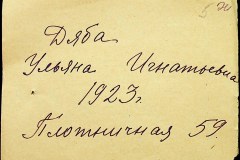 Дяба
Ульяна Игнатьевна
1923г.
Плотничная 59.